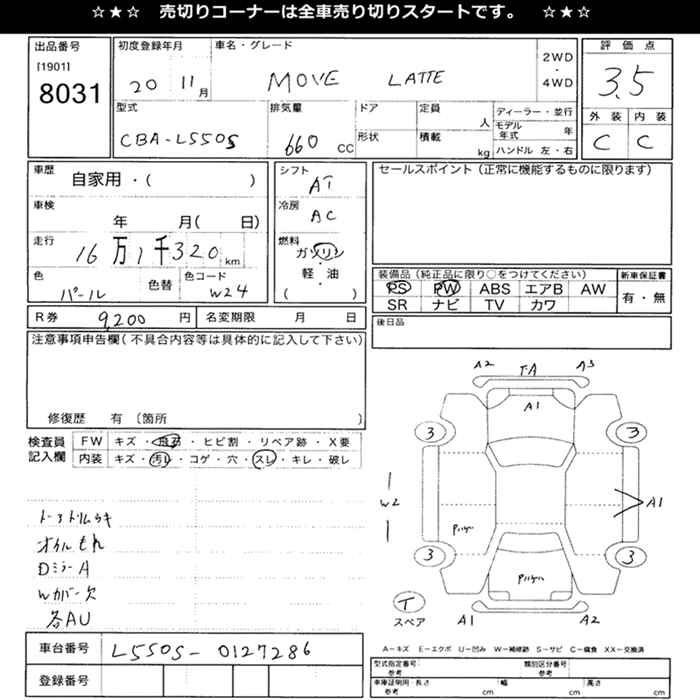 ☆★☆ 売切りコーナーは全車売り切りスタートです。 ☆★☆
出品番号
[1901]
8031
初度登録年月
20 11月
車名・グレード
MOVE LATTE
2WD
・
4WD
評価点
3.5
型式
CBA-L550S
排気量
660 CC
ドア
形状
定員
人
積載
kg
ディーラー・並行
モデル年式 年
ハンドル 左・右
外装 内装
C C
車歴
自家用・( )
車検
年 月( 日)
走行
16万1千320km
色
パール
色替
色コード
W24
シフト
AT
冷房
AC
燃料
ガソリン
・
軽・油
( )
セールスポイント(正常に機能するものに限ります)
装備品(純正品に限り○をつけてください)
PS PW ABS エアB AW
SR ナビ TV カワ
新車保証書
有・無
R券 9,200 円
名変期限 月 日
後日品
注意事項申告欄(不具合内容等は具体的に記入して下さい)
修復歴 有 〔箇所 〕
検査員
記入欄
FW キズ・飛石・ヒビ割・リペア跡・X要
内装 キズ・汚レ・コゲ・穴・スレ・キレ・破レ
ドアトリムウキ
オイルもれ
DミラーA
Wカバー欠
各AU
A2 TA A3
A1
3 3
W2
A1
3 3
T
スペア
A1 A2
車台番号 L550S-0127286
登録番号
A－キズ E－エクボ U－凹み W－補修跡 S－サビ C－腐食 XX－交換済
型式指定番号: 参考
類別区分番号: 参考
車庫証明用・長さ 参考 cm
幅 cm
高さ cm